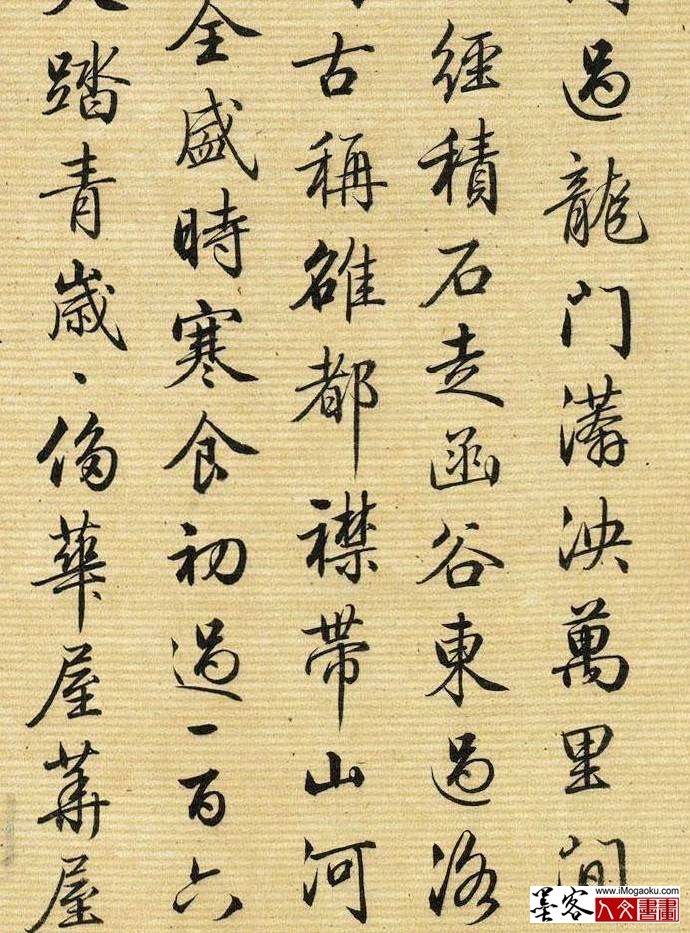 過龍門漭泱萬里間
經積石走函谷東過洛
古稱雒都襟帶山河
全盛時寒食初過一百六
踏青歲、侈華屋華屋
www.iMogaoku.com
墨客人文書畫